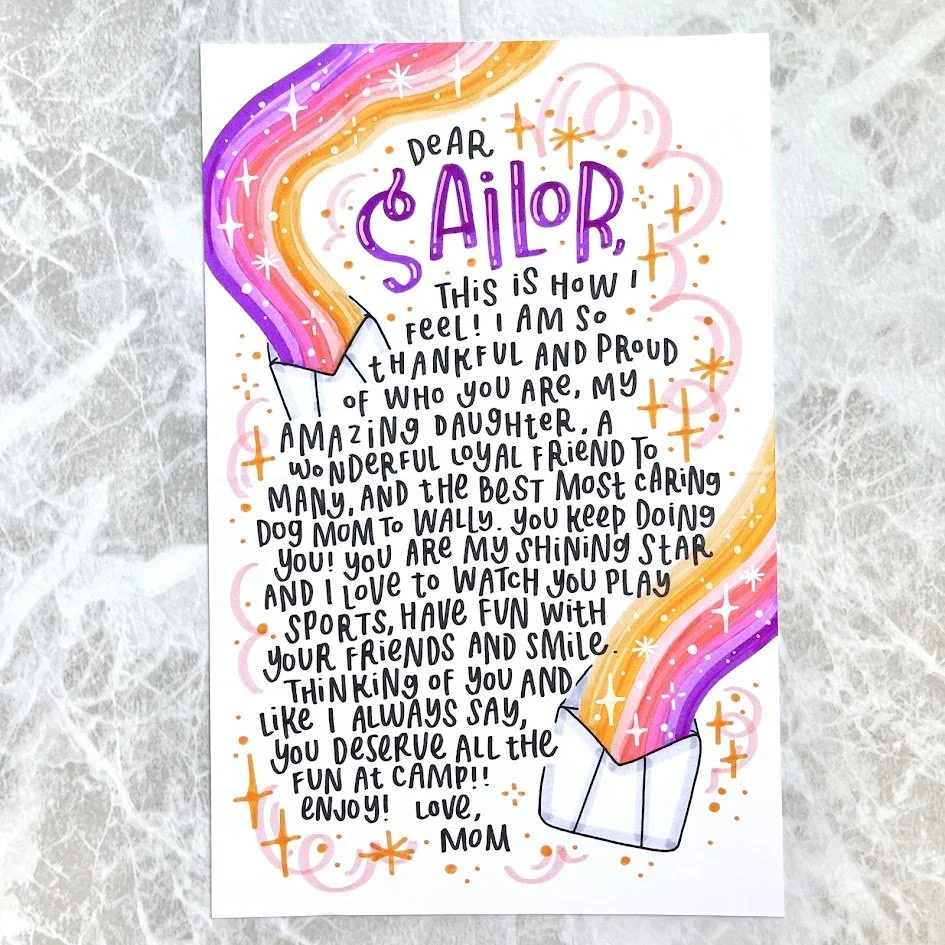 DEAR
SAILOR,
THIS IS HOW I
FEEL! I AM SO
THANKFUL AND PROUD
OF WHO YOU ARE, MY
AMAZING DAUGHTER, A
WONDERFUL LOYAL FRIEND TO
MANY, AND THE BEST MOST CARING
DOG MOM TO WALLY. YOU KEEP DOING
YOU! YOU ARE MY SHINING STAR
AND I LOVE TO WATCH YOU PLAY
SPORTS, HAVE FUN WITH
YOUR FRIENDS AND SMILE.
THINKING OF YOU AND
LIKE I ALWAYS SAY,
YOU DESERVE ALL THE
FUN AT CAMP!!
ENJOY! LOVE,
MOM